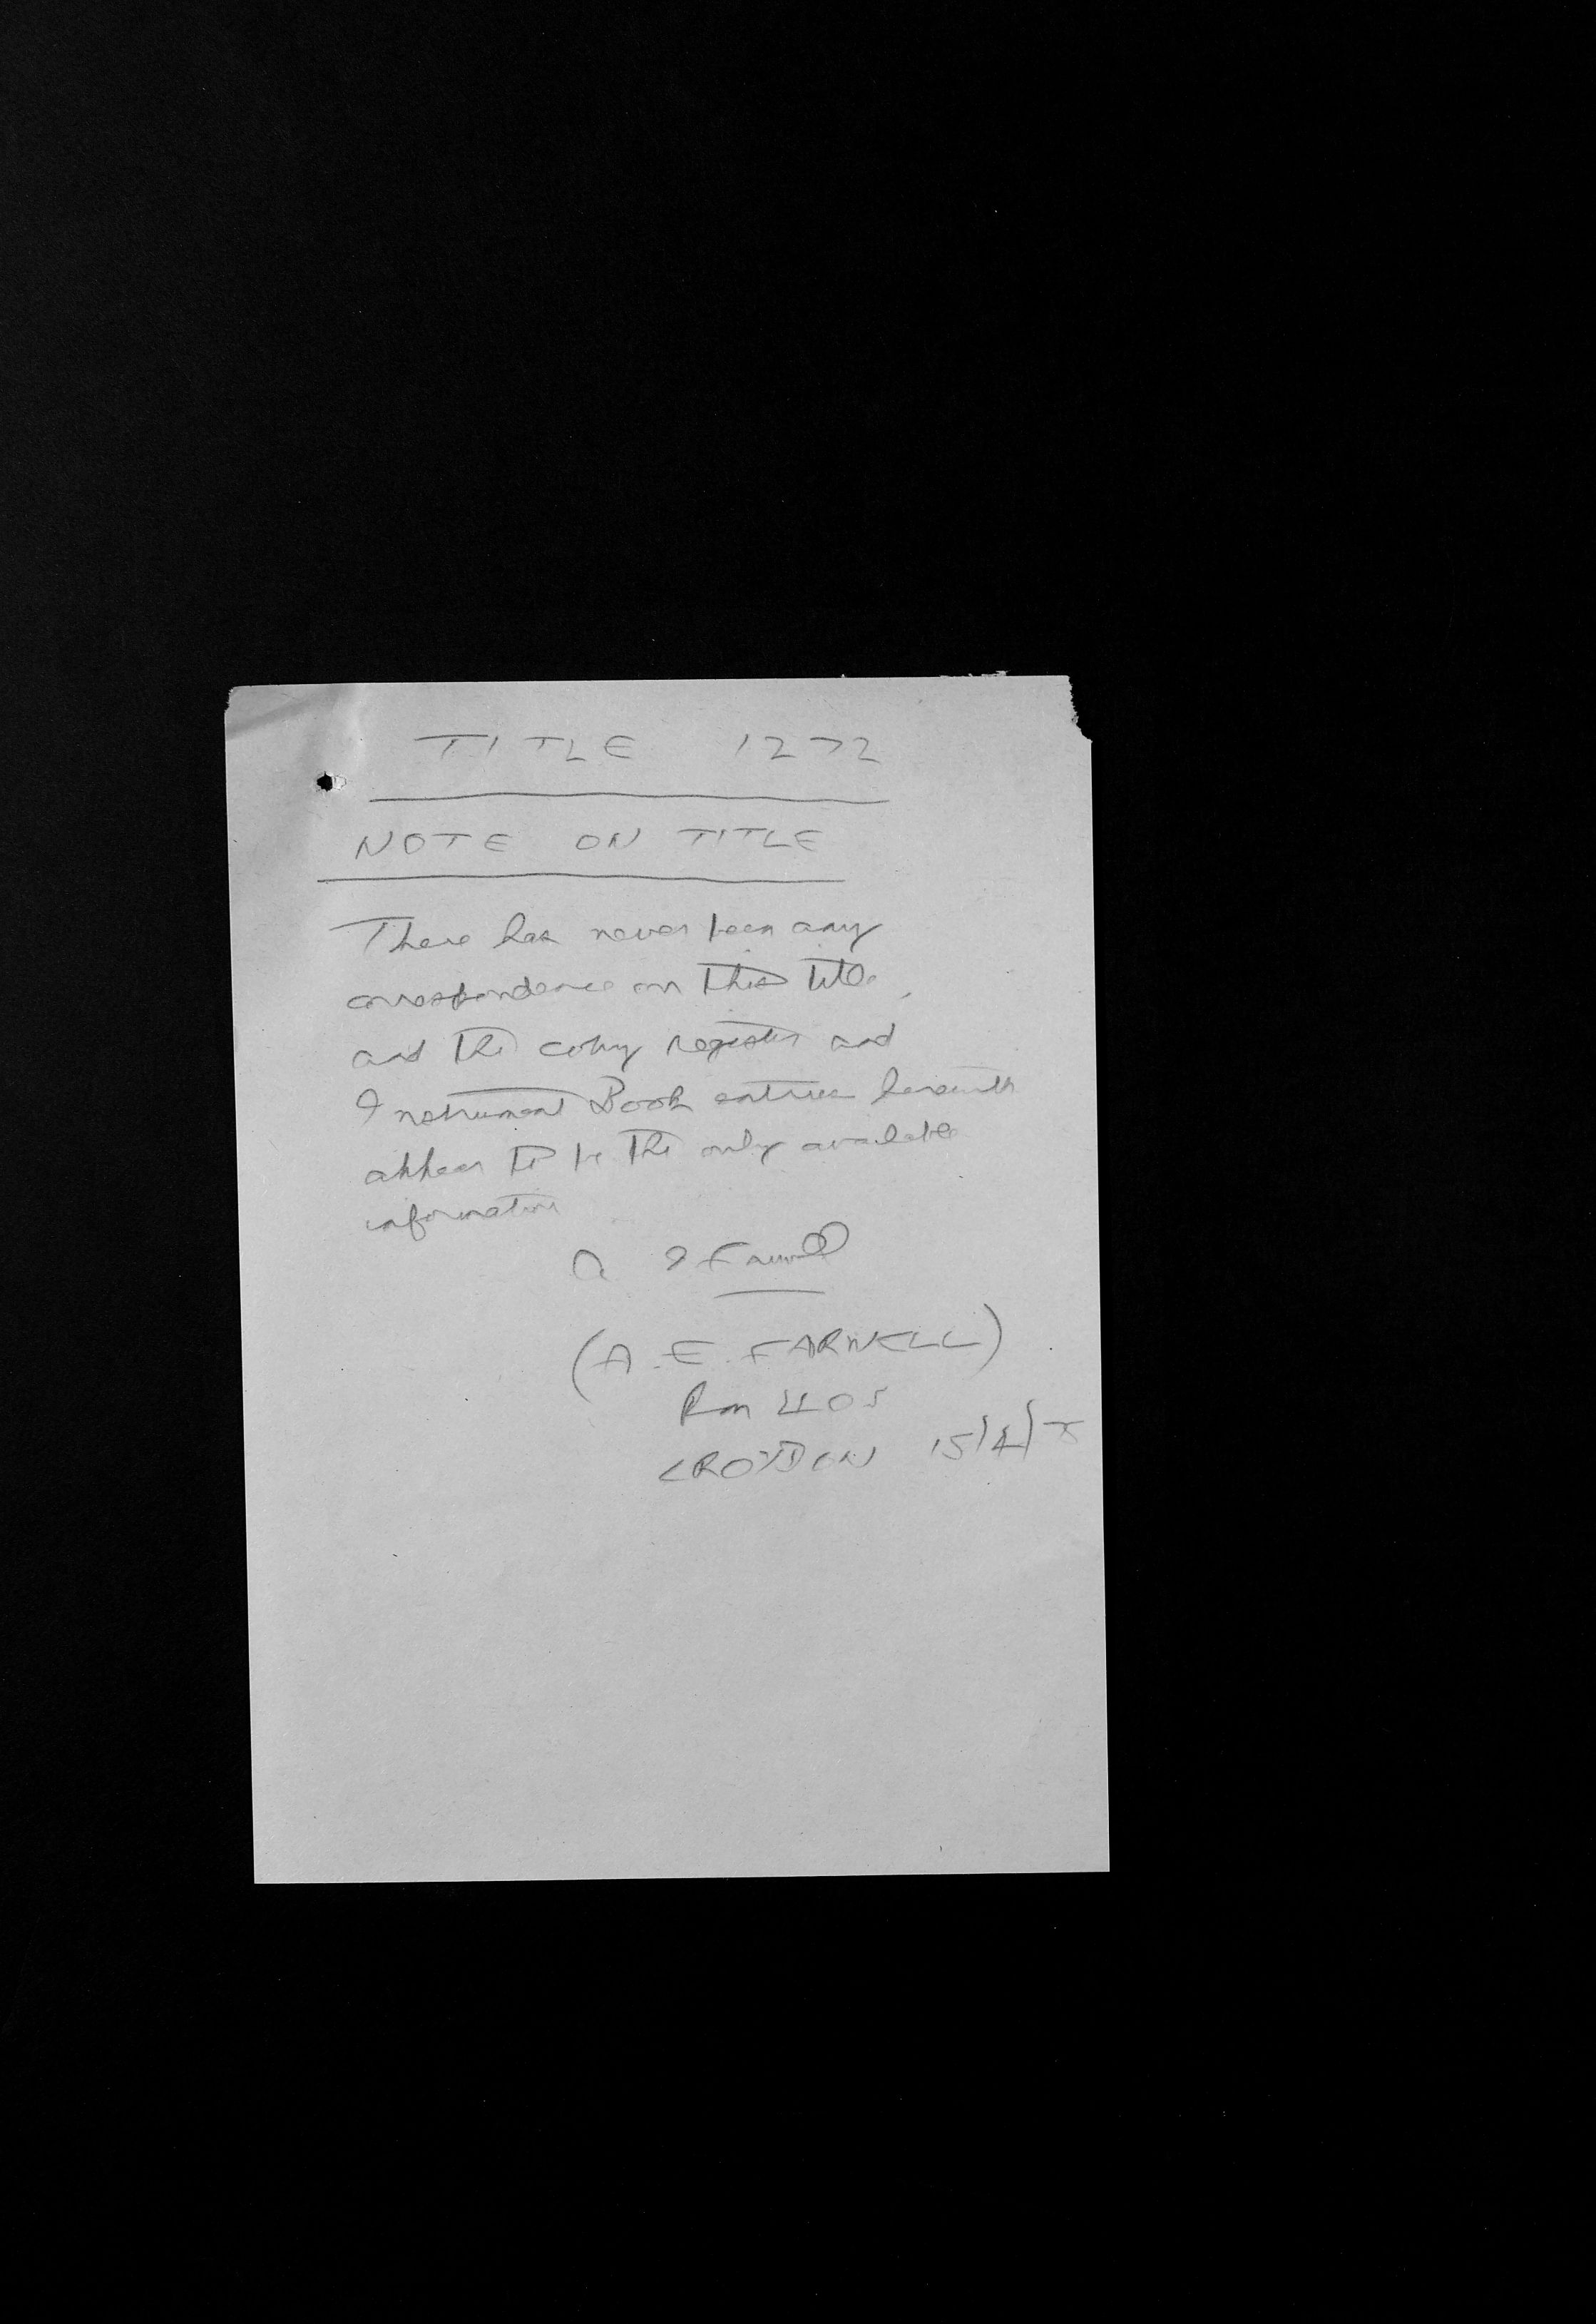 TITLE 1272
NOTE ON TITLE
There has never been any
correspondence on this title,
and the copy register and
Instrument Book entries herewith
appear to be the only available
information
A E Farwell
(A. E. FARWELL)
Rm 405
CROYDON 15/4/